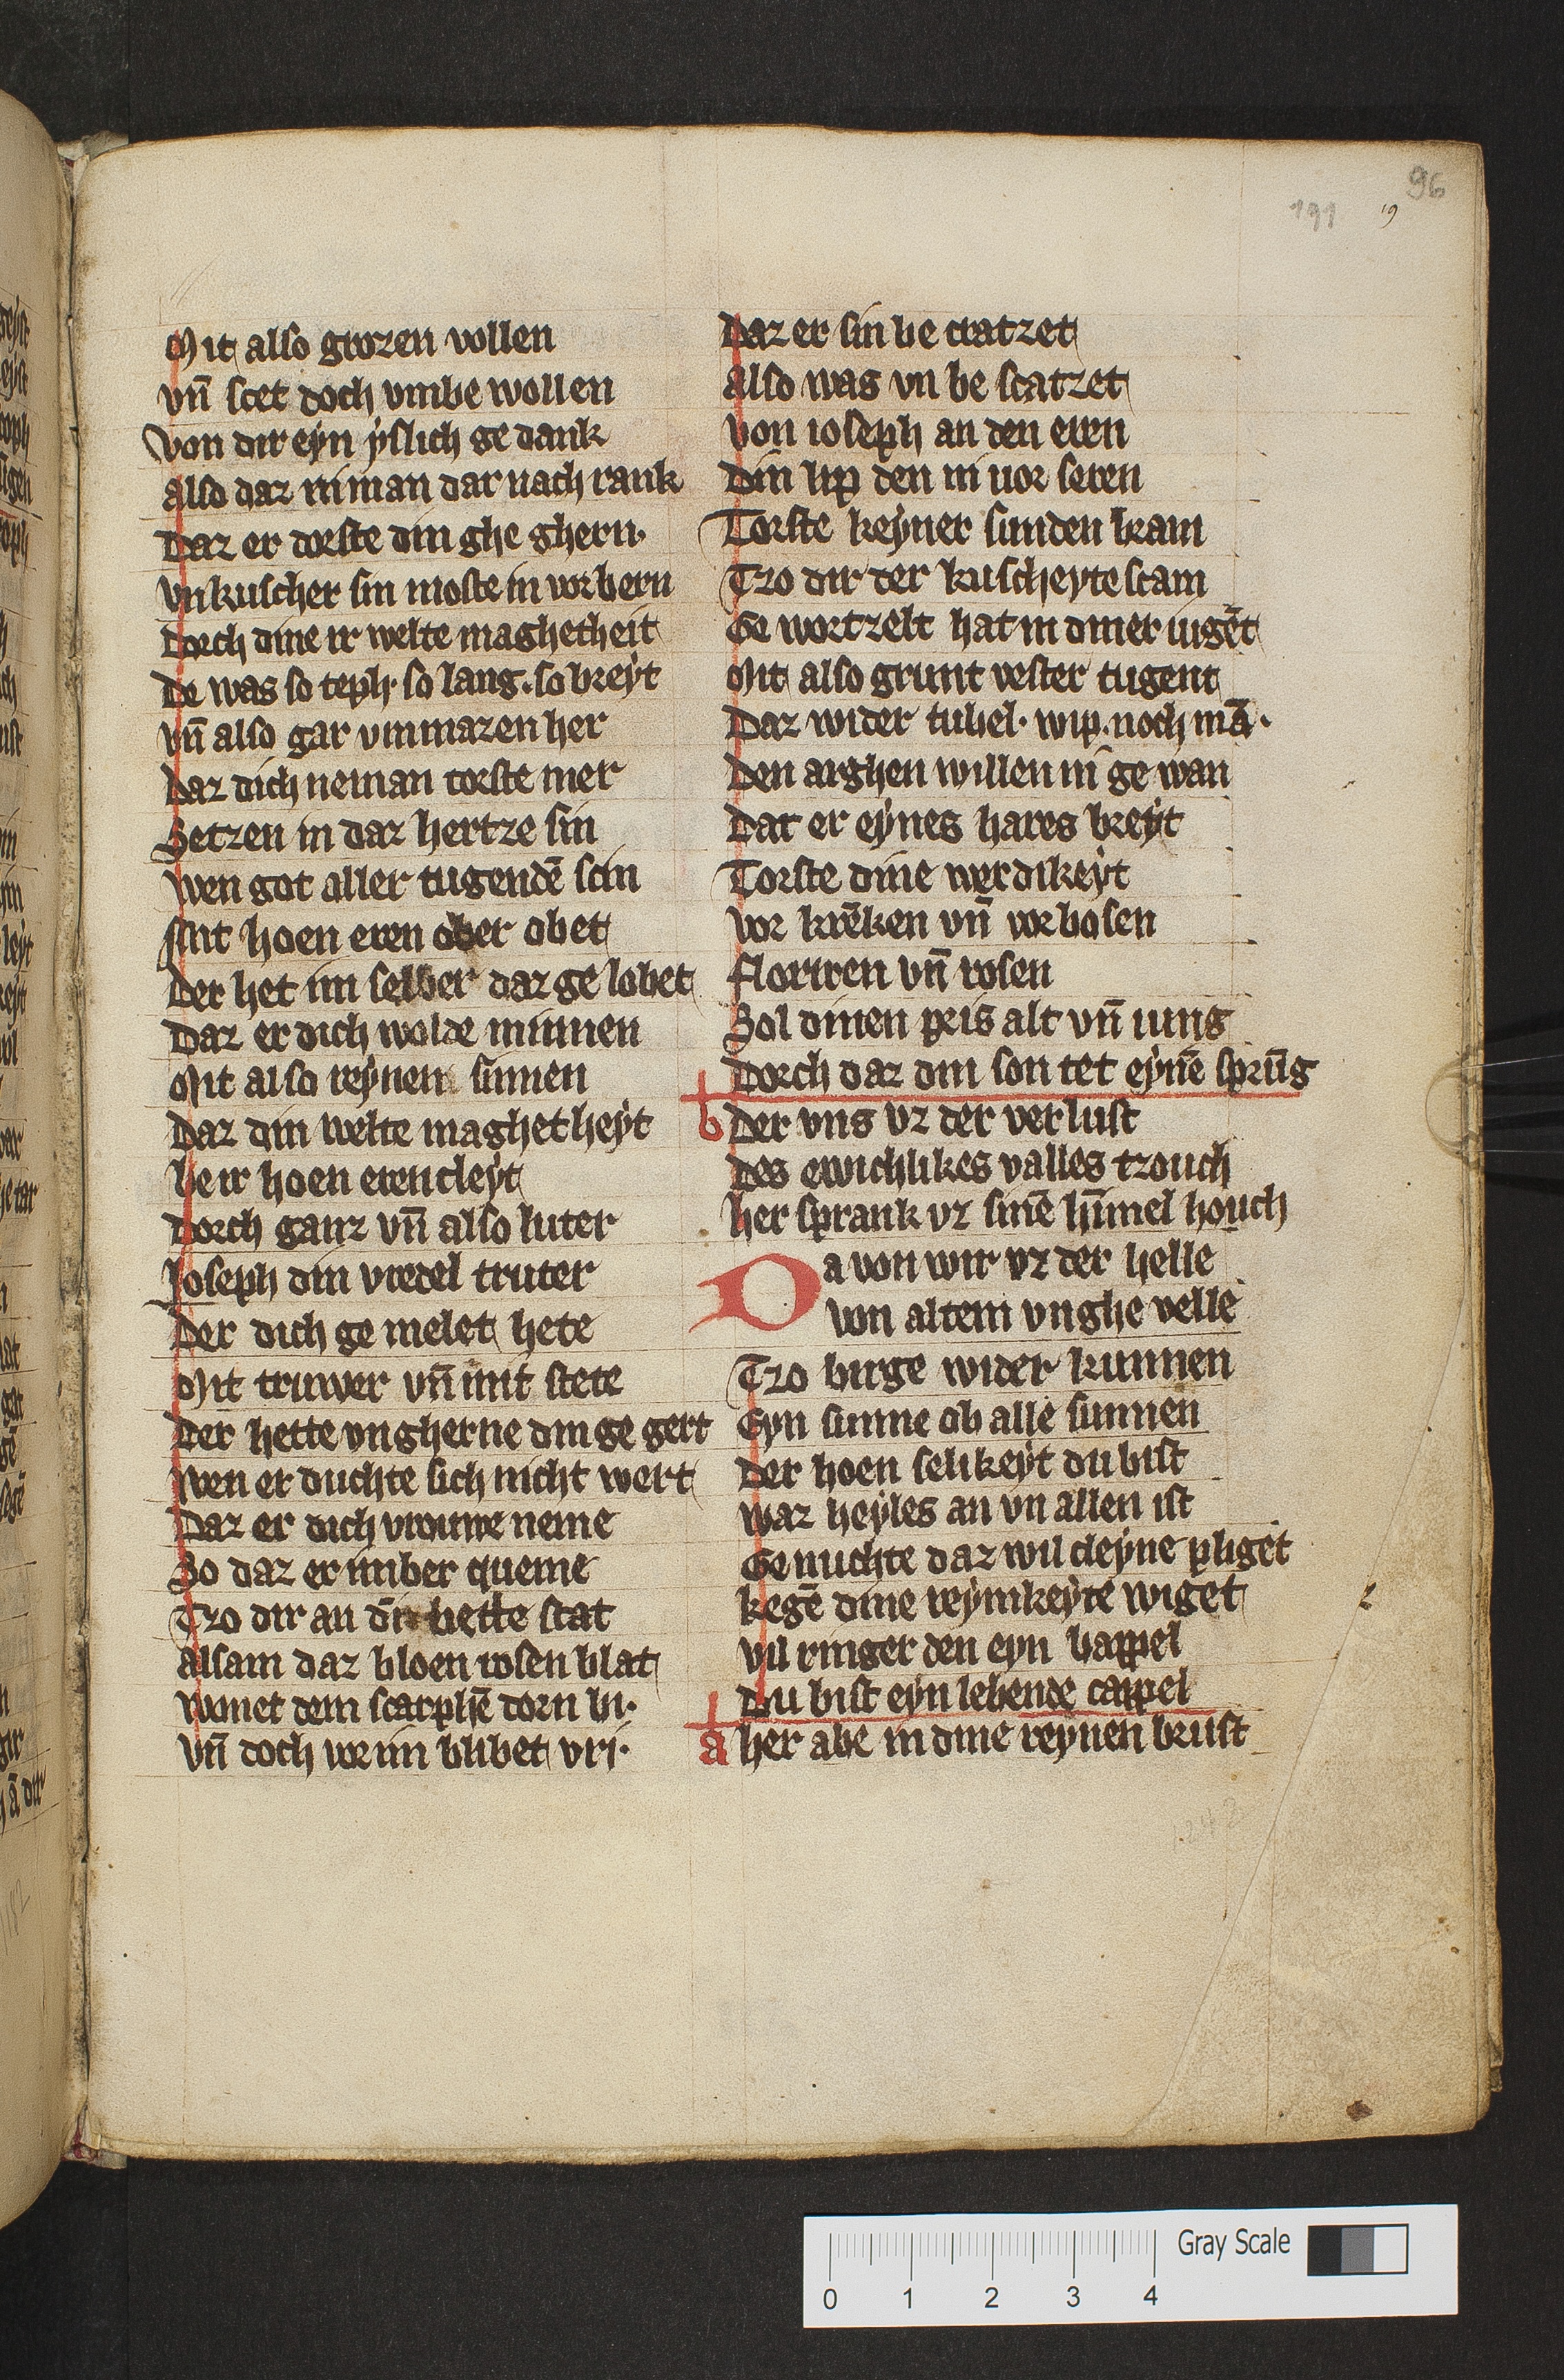 96
191
19
Mit also grozen vollen
vn̄ stet doch vmbe wollen
Von dir eyn yslich ge dank
also daz niman dar nach rank
Daz er dorste din ghe ghern·
vnkuscher sin moste in vorbern
Dorch dine ir welte maghetheit
De was so teph· so lang· so breyt
vn̄ also gar vmmazen her
Daz dich neman torste mer
Setzen in daz hertze sin
wen got aller tugendē scin
Mit hoen eren ober obet
Der het im selber daz ge lobet
Daz er dich wolde minnen
Mit also reynen sinnen
Daz din welte maghetheyt
be ir hoen eren cleyt
Dorch ganz vn̄ also luter
Joseph din vredel truter
Der dich ge melet hete
Mit truwer vn̄ mit stete
Der hette vngherne din ge gert
wen er duchte sich nicht wert
Daz er dich vrouwe neme
So daz er imber queme
Tzo dir an dī hette stat
alsam daz bloen rosen blat
wonet dem scarphē dorn bi·
vn̄ doch vor im blibet vri·
Daz er sin be cratzet
also was vn be scatzet
Von ioseph an den eren
Din lip den ni uor seren
Torste keyner sunden kram
Tzo dir der kuscheyte stam
Ge wortzelt hat in diner iugēt
Mit also grunt vester tugent
Daz wider tubel· wip· noch mā·
Den arghen willen ni ge wan
Dat er eynes hares breyt
Torste dine werdikeyt
vor krēken vn̄ vorbosen
floriren vn̄ rosen
Sol dinen pris alt vn̄ iung
Dorch daz din son tet eynē sprūg
b Der vns vz der verlust
Des ewichlikes valles tzouch
her sprank vz sinē hīmel houch
Da von wir vz der helle
von altem vnghe velle
Tzo birge wider kunnen
Eyn sunne ob alle sunnen
Der hoen selikeyt du bist
waz heyles an vn allen ist
Genuchte daz wil cleyne pliget
kegē dine reynikeyte wiget
vil ringer den eyn bappel
Du bist eyn lebende cappel
a her abe in dine reynen brust
Gray Scale
0 1 2 3 4